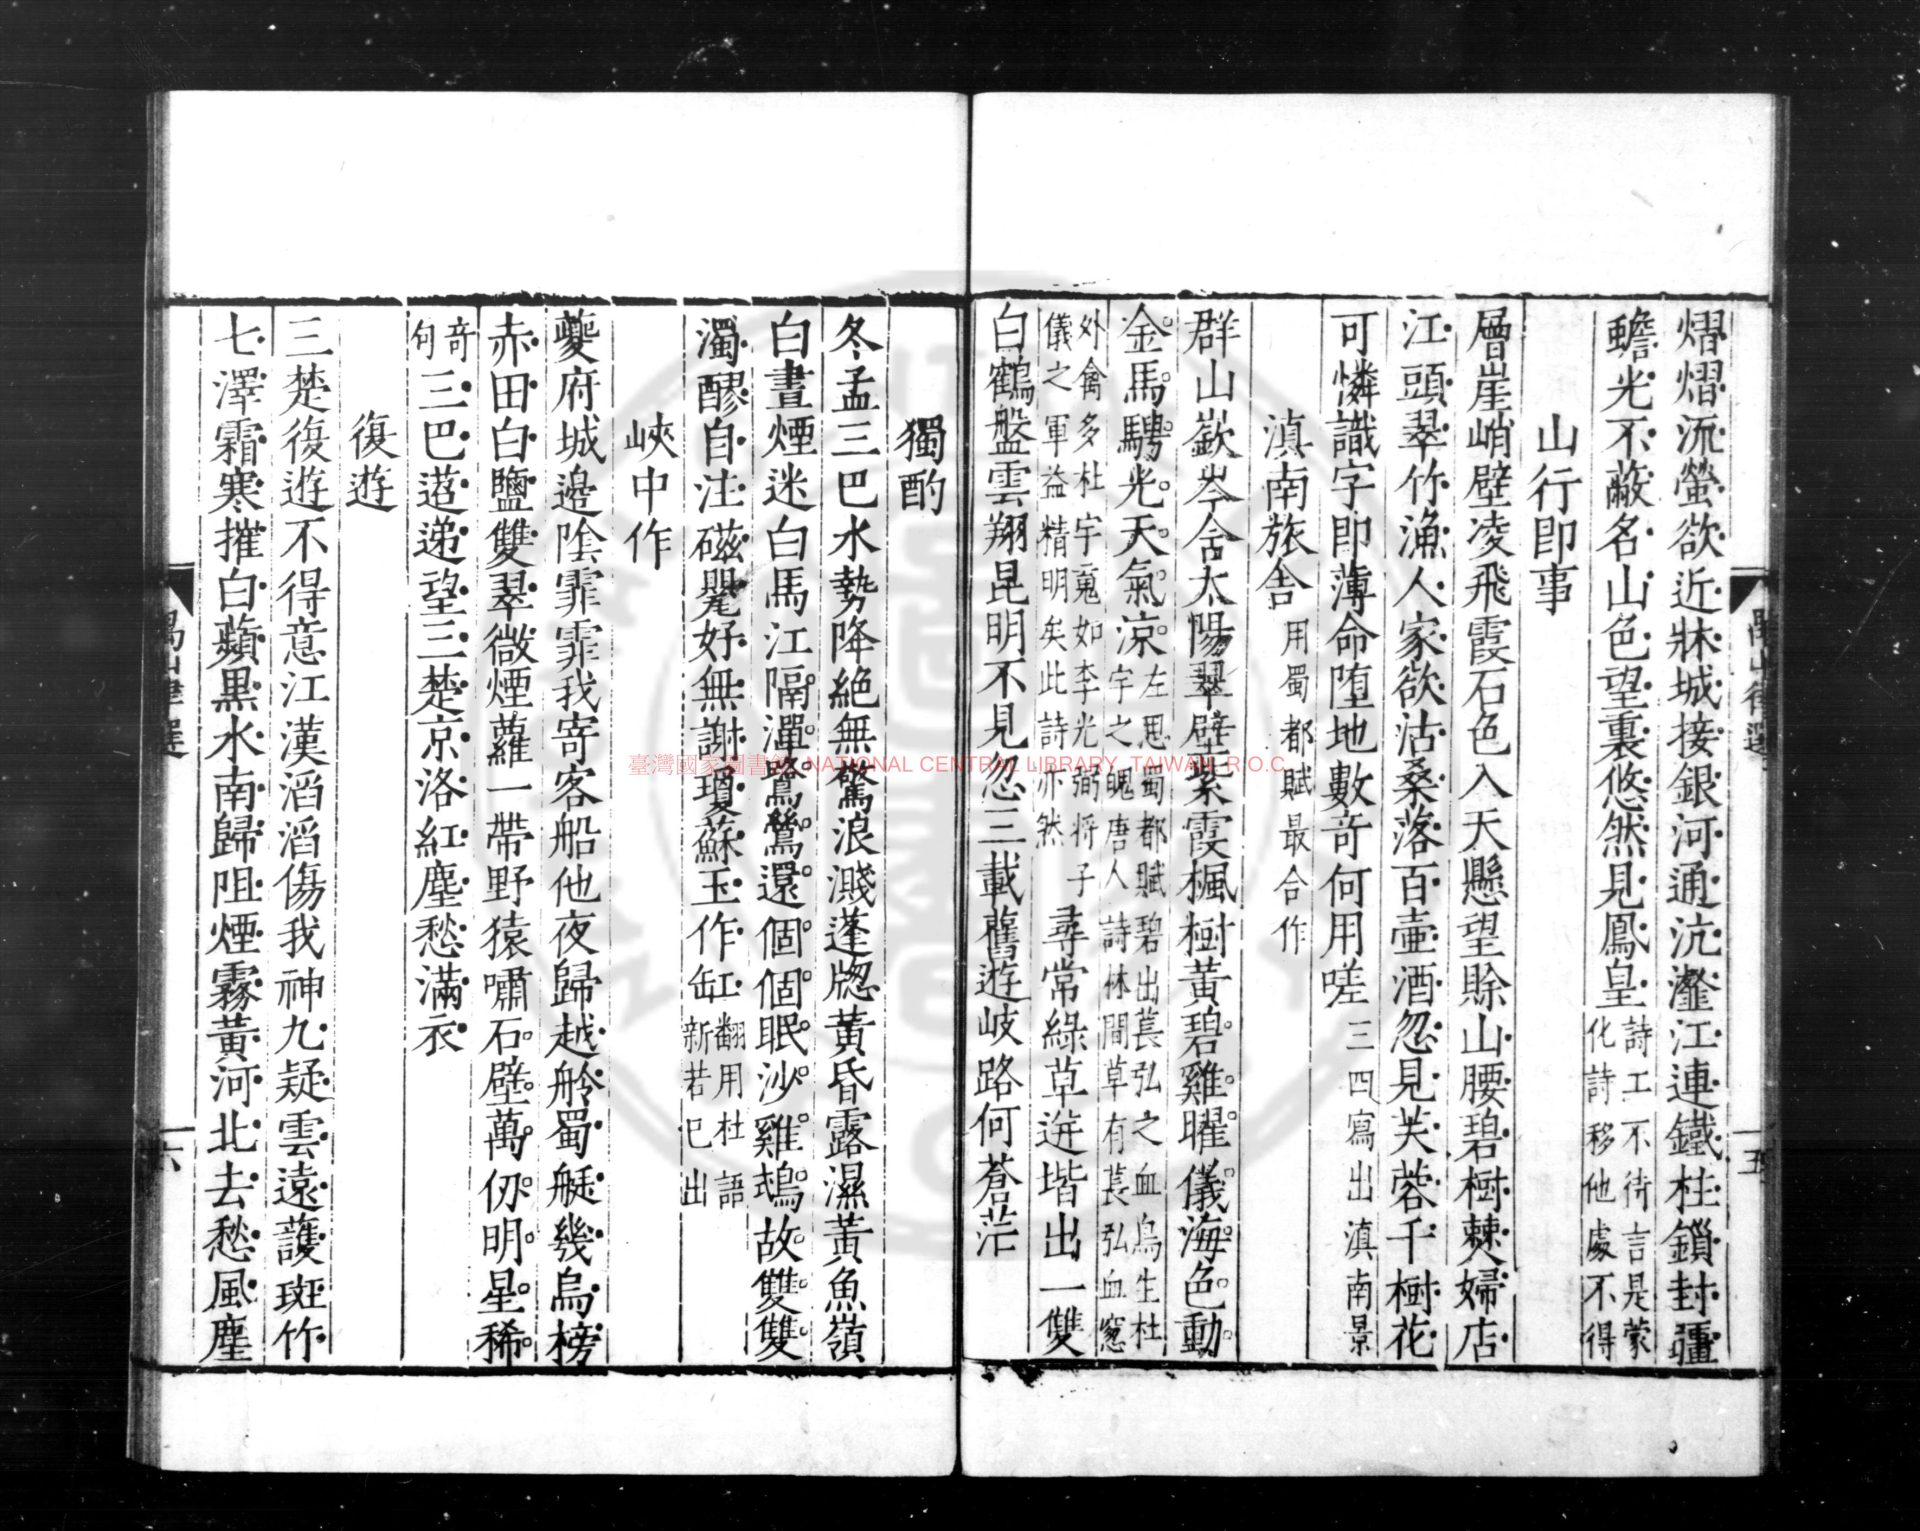 熠熠流螢欲近牀城接銀河通沆瀣江連鐵柱鎖封疆
蟾光不蔽名山色望裏悠然見鳳皇詩工不待言是蒙
化詩移他處不得
山行即事
層崖峭壁凌飛霞石色入天懸望賒山腰碧樹僰婦店
江頭翠竹漁人家欲沽桑落百壷酒忽見芙蓉千樹花
可憐識字即薄命堕地數奇何用嗟三四寫出滇南景
滇南旅舍用蜀都賦最合作
群山嶔岑含太陽翠壁紫霞楓樹黃碧雞曜儀海色動
金馬騁光天氣凉左思蜀都賦碧出萇弘之血鳥生杜
宇之魄唐人詩林間草有萇弘血窓
外禽多杜宇䰟如李光弼將子
儀之軍益精明矣此詩亦然
尋常綠草迸堦出一雙
白鶴盤雲翔昆明不見忽三載舊遊岐路何蒼茫
禺山律選
十五
獨酌
冬孟三巴水勢降絕無驚浪濺蓬牕黃昏露濕黃魚嶺
白晝煙迷白馬江隔潭鷺鷥還個個眠沙雞鵡故雙雙
濁醪自注磁甖好無謝瓊蘇玉作缸翻用杜語
新若已出
峽中作
夔府城邊陰霏霏我寄客船他夜歸越舲蜀艇幾烏榜
赤田白鹽雙翠微煙蘿一帶野猿嘯石壁萬仞明星稀
奇
句三巴迢遞望三楚京洛紅塵愁滿衣
復遊
三楚復遊不得意江漢滔滔傷我神九疑雲遠護斑竹
七澤霜寒摧白蘋黒水南歸阻煙霧黃河北去愁風塵
禺山律選
十六
臺灣國家圖書館 NATIONAL CENTRAL LIBRARY, TAIWAN, R.O.C.